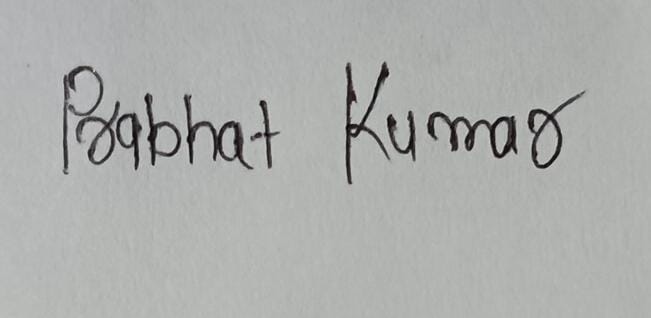 Prabhat Kumar